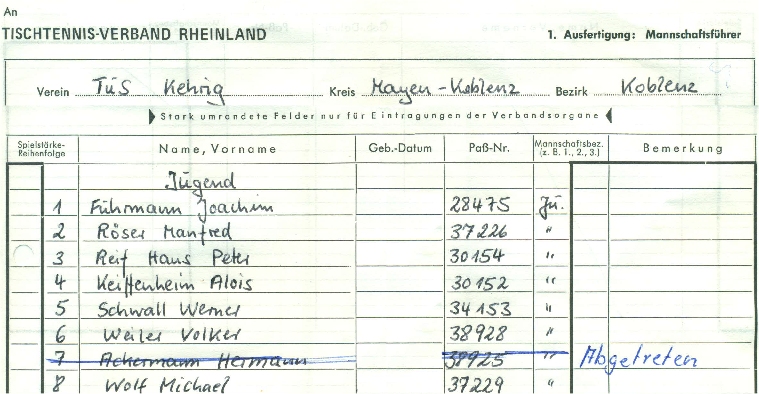 An
TISCHTENNIS-VERBAND RHEINLAND
1. Ausfertigung: Mannschaftsführer
Verein TuS Kehrig Kreis Mayen-Koblenz Bezirk Koblenz
Stark umrandete Felder nur für Eintragungen der Verbandsorgane
Spielstärke-Reihenfolge Name, Vorname Geb.-Datum Paß-Nr. Mannschaftsbez. (z. B. 1., 2., 3.) Bemerkung
Jugend
1 Fuhrmann Joachim 28475 Ju.
2 Röser Manfred 37226 "
3 Reif Hans Peter 30154 "
4 Keiffenheim Alois 30152 "
5 Schwall Werner 34153 "
6 Weiler Volker 38928 "
7 Ackermann Hermann 38925 " Abgetreten
8 Wolf Michael 37229 "